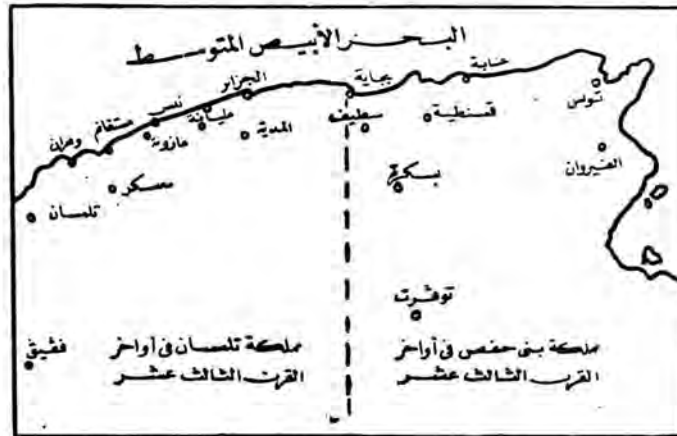 البحر الأبيض المتوسط
عنابة
بجاية
الجزائر
تونس
تنس
مليانة
مستغانم
وهران
مازونة
المدية
سطيف
قسنطينة
القيروان
بسكرة
معسكر
تلمسان
توقرت
فقيق
مملكة بنى حفص فى أواخر
القرن الثالث عشر
مملكة تلمسان فى أواخر
القرن الثالث عشر